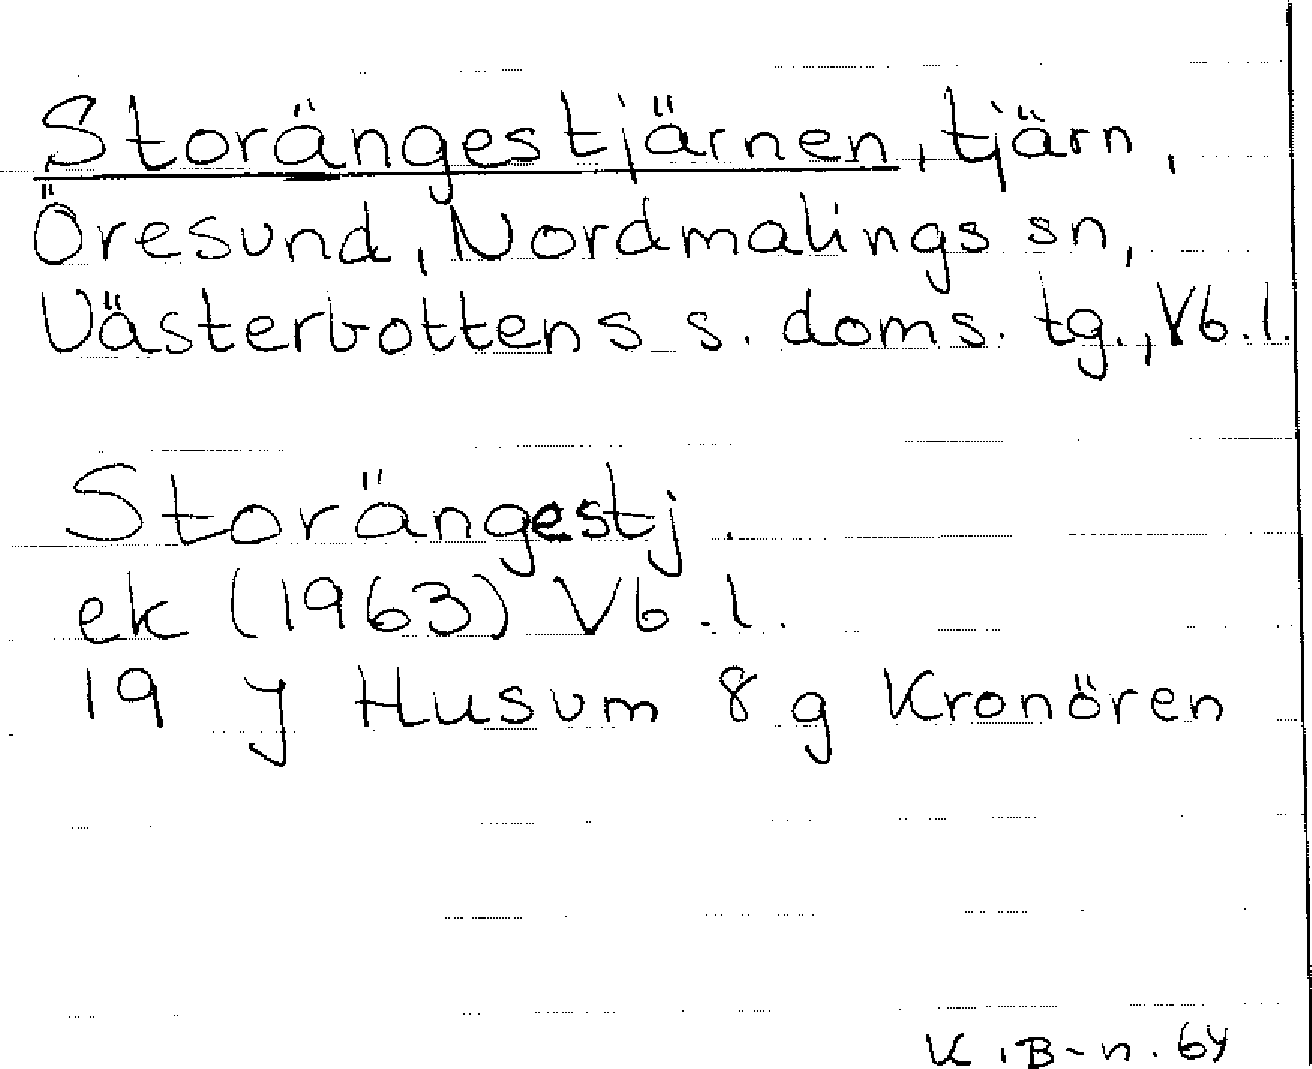 Storängestjärnen, tjärn,
Öresund, Nordmalings sn,
Västerbottens s. doms. tg., Vb. l.
Storängestj.
ek (1963) Vb. l.
19 J Husum 8 g Kronören
K. B-n. 64